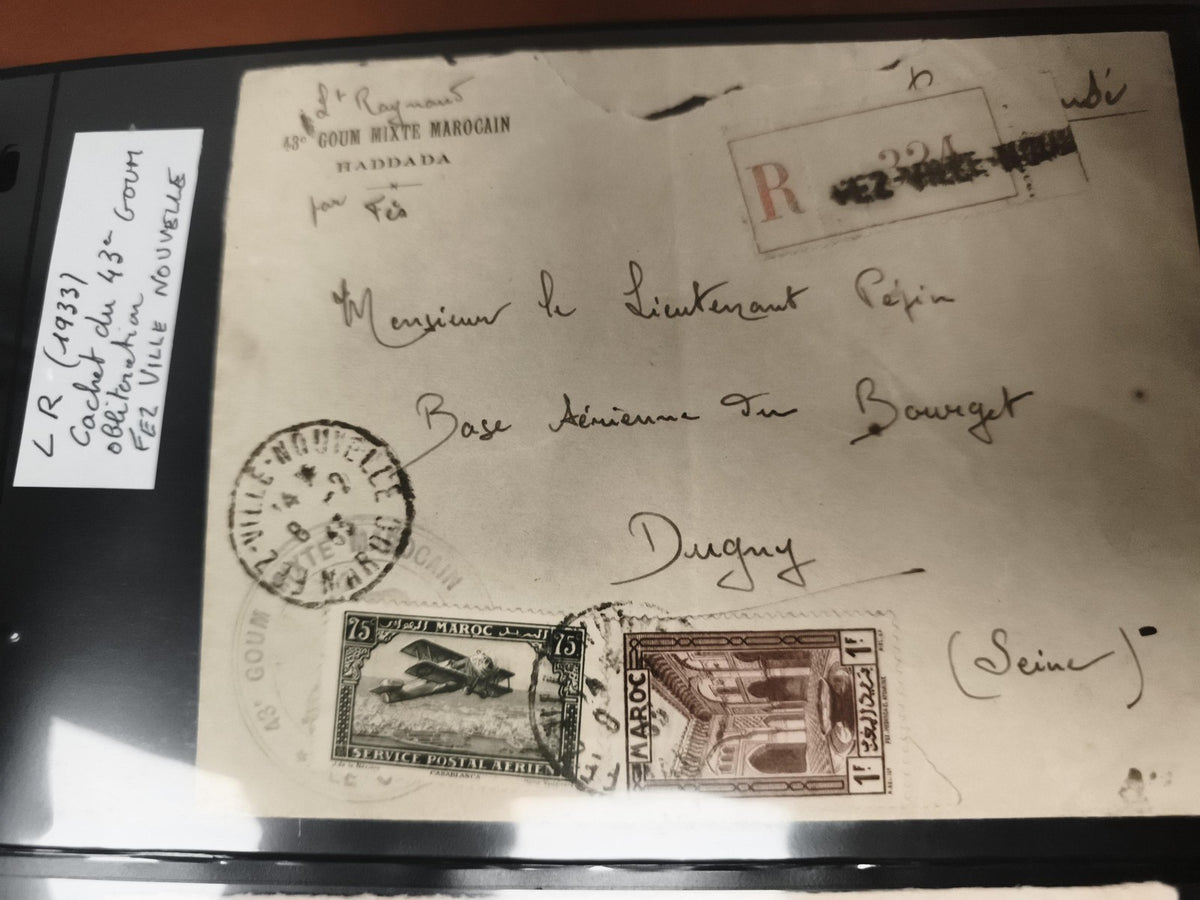 L R (1933)
Cachet du 43e GOUM
oblitération
FEZ VILLE NOUVELLE
Lt Raynaud
43e GOUM MIXTE MAROCAIN
HADDADA
par Fès
R 324
FEZ-VILLE-NOUV
Monsieur le Lieutenant Pépin
Base Aérienne du Bourget
Dugny
(Seine)
Z-VILLE-NOUVELLE
14 * 8 -2 33
MAROC
43e GOUM MIXTE MAROCAIN
75 MAROC البريد الجوي 75
SERVICE POSTAL AÉRIEN
CASABLANCA
MAROC
1F
1F